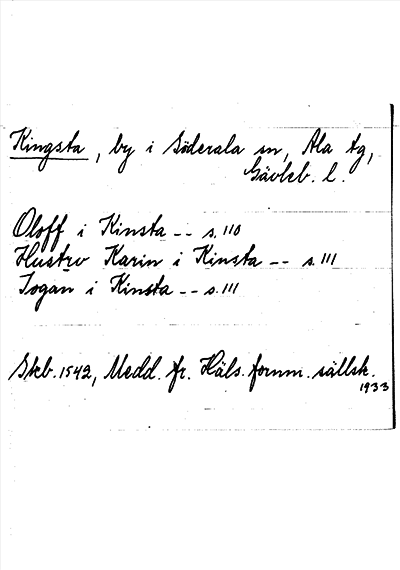 Kingsta, by i Söderala sn, Ala tg,
Gävleb. l.
Oloff i Kinsta -- s. 110
Hustrv Karin i Kinsta -- s. 111
Jogan i Kinsta -- s. 111
Skb. 1542, Medd. fr. Häls. fornm. sällsk.
1933